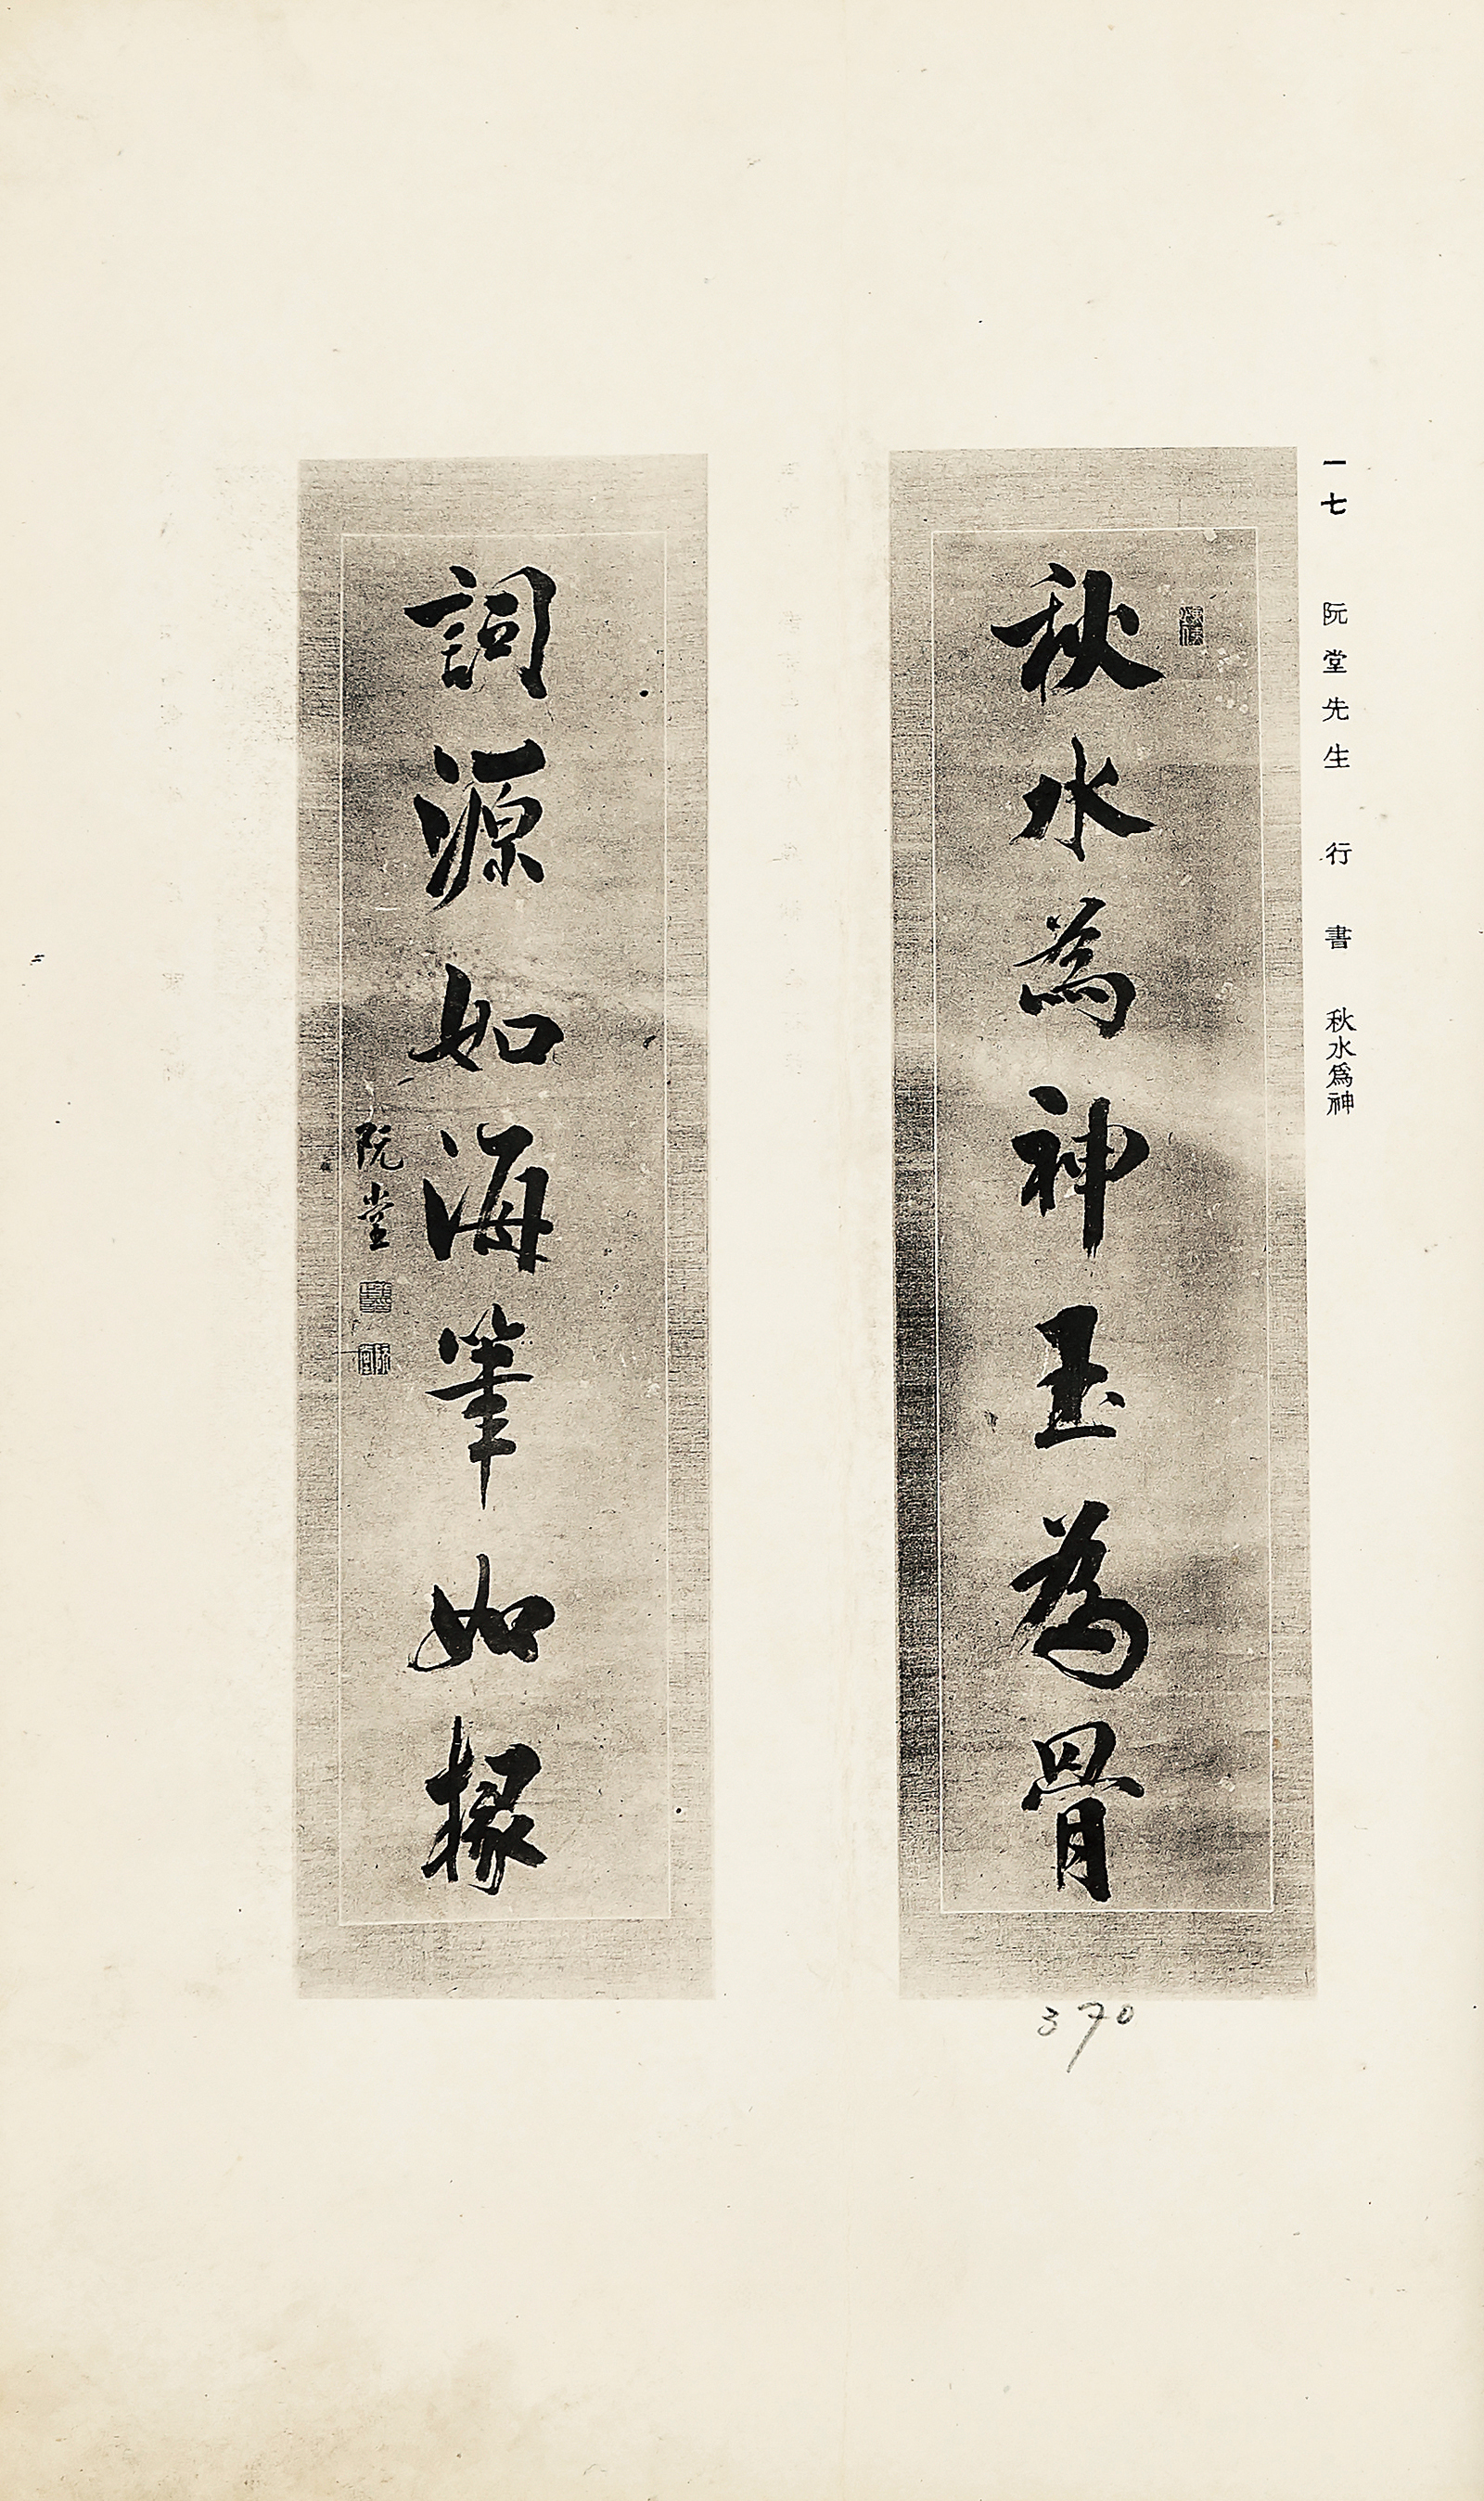 一七 阮堂先生 行書 秋水爲神
秋水為神玉為骨
詞源如海筆如椽
阮堂
370